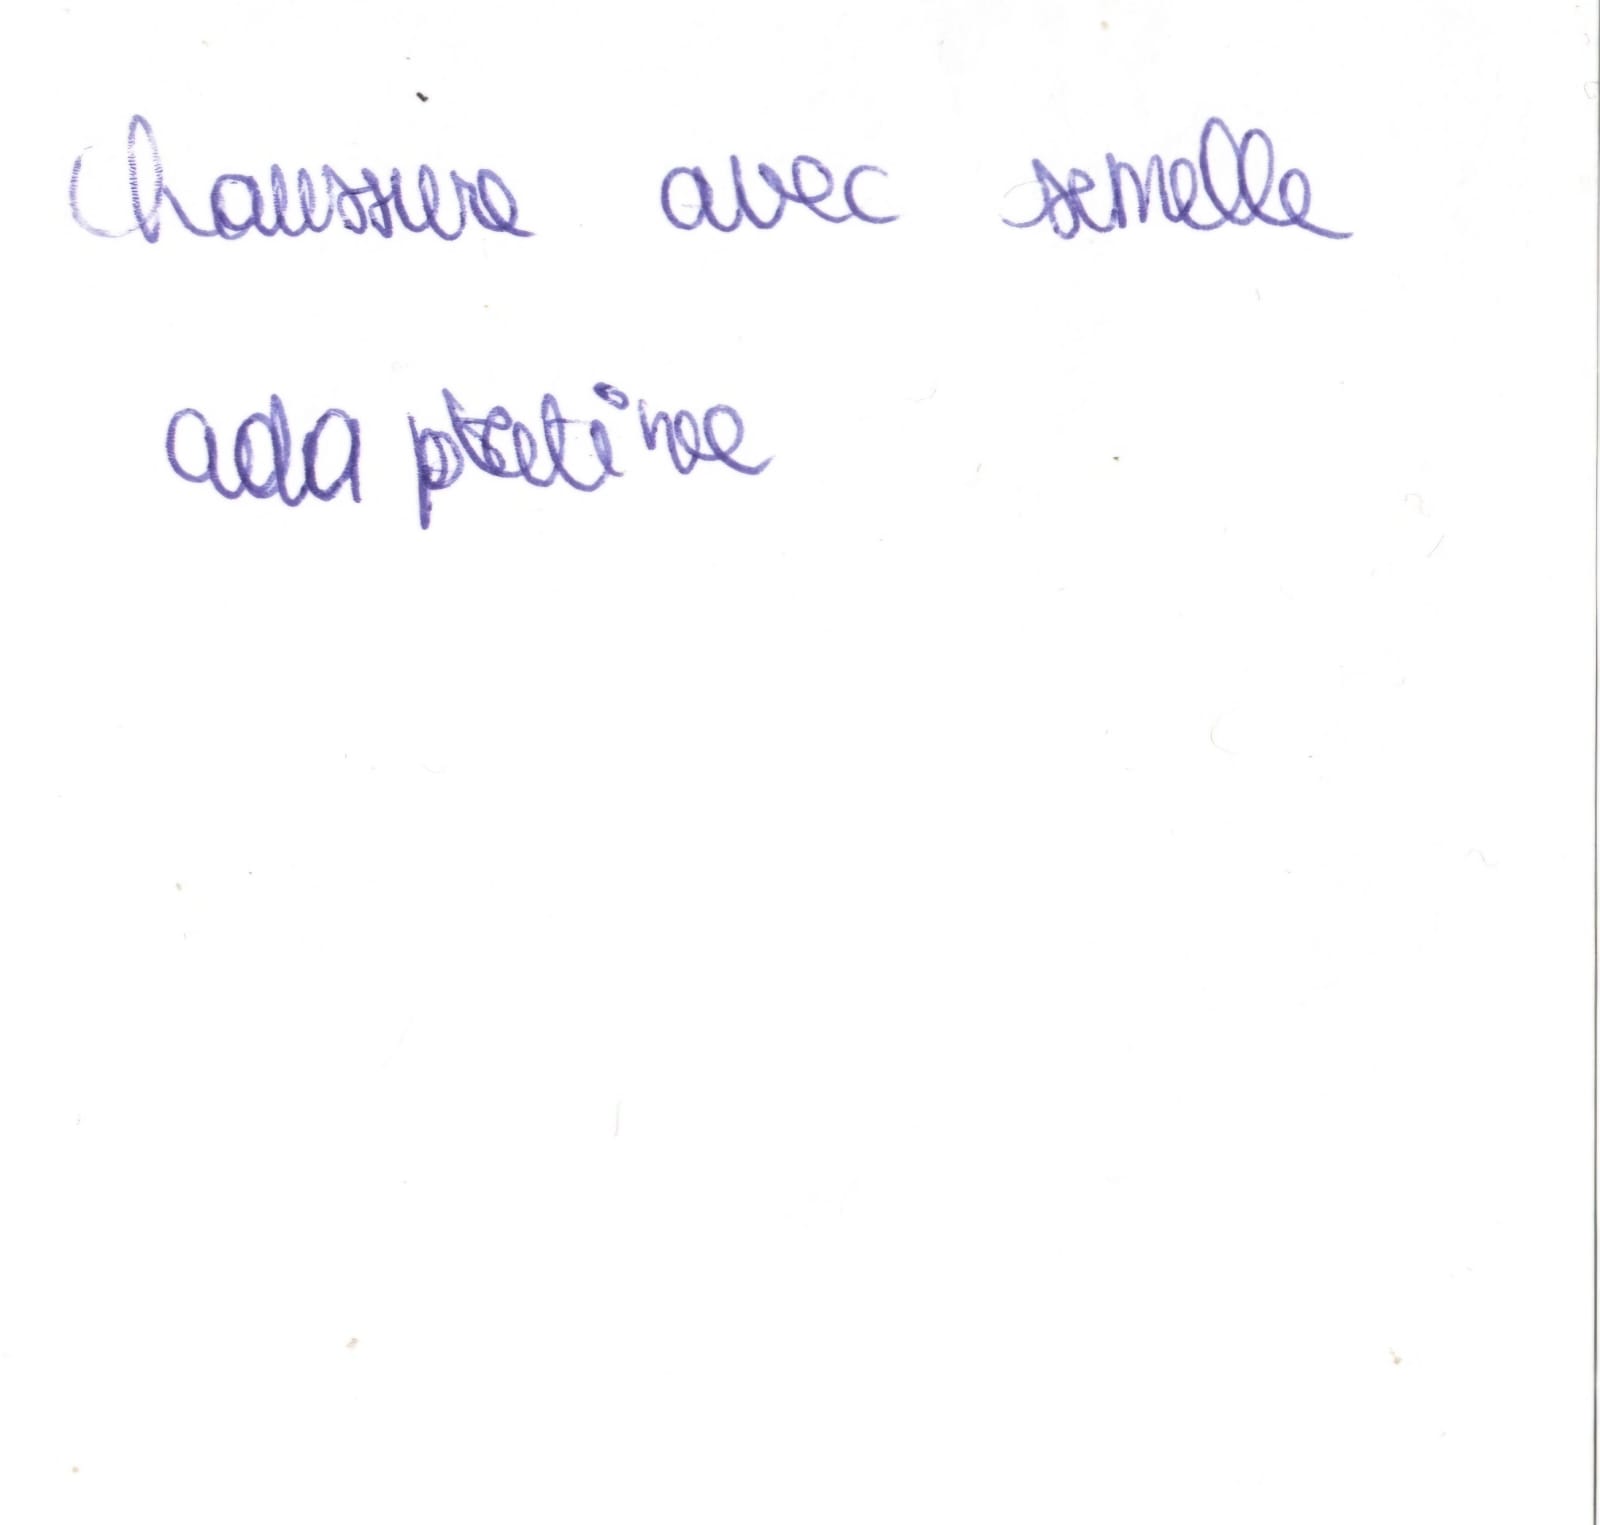 chaussure avec semelle
adaptative